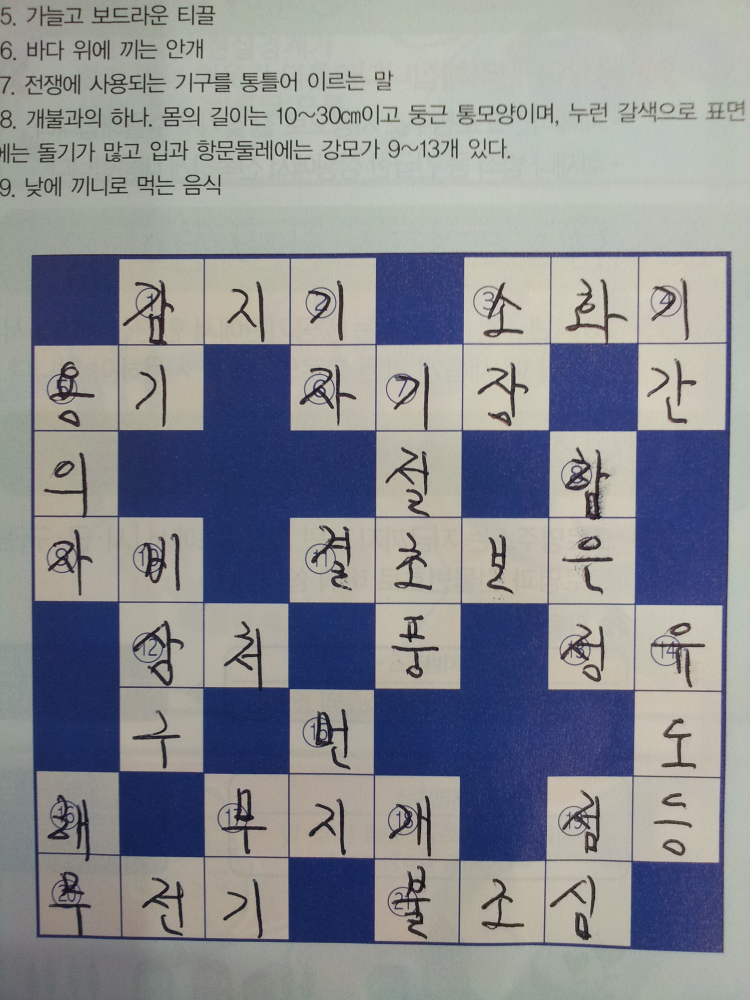 5. 가늘고 보드라운 티끌
6. 바다 위에 끼는 안개
7. 전쟁에 사용되는 기구를 통틀어 이르는 말
8. 개불과의 하나. 몸의 길이는 10~30cm이고 둥근 통모양이며, 누런 갈색으로 표면
에는 돌기가 많고 입과 항문둘레에는 강모가 9~13개 있다.
9. 낮에 끼니로 먹는 음식
① 잠 지 ② 기 ③ 소 화 ④ 기
⑤ 용 기 ⑥ 자 ⑦ 기 장 간
의 질 ⑧ 함
자 비 ⑪ 결 초 보 은
⑫ 상 처 풍 ⑬ 정 ⑭ 유
구 번 도
해 무 지 ⑱ 개 점 등
⑳ 무 전 기 불 조 심